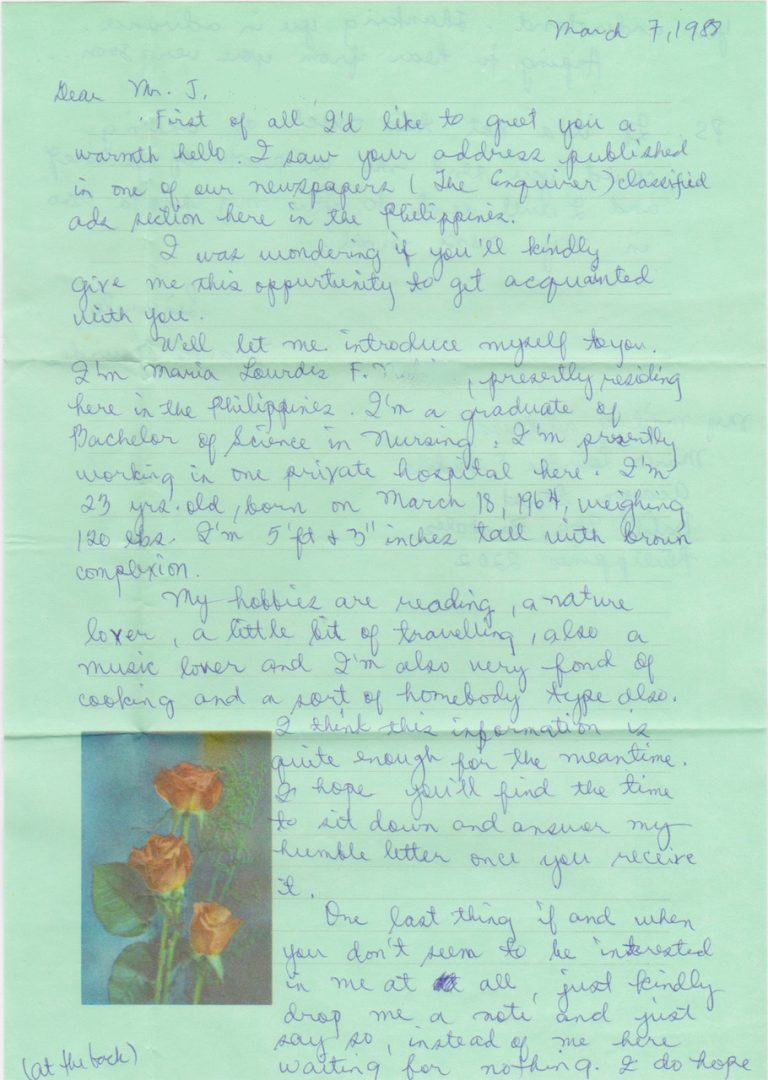 March 7, 1988
Dear Mr. J.
First of all I'd like to greet you a
warmth hello. I saw your address published
in one of our newspapers (The Enquirer) classified
ads section here in the Philippines.
I was wondering if you'll kindly
give me this oppurtunity to get acquainted
with you.
Well let me introduce myself to you.
I'm Maria Lourdes F. , presently residing
here in the Philippines. I'm a graduate of
Bachelor of Science in Nursing. I'm presently
working in one private hospital here. I'm
23 yrs. old, born on March 18, 1964, weighing
120 lbs. I'm 5'ft & 3" inches tall with brown
complexion.
My hobbies are reading, a nature
lover, a little bit of travelling, also a
music lover and I'm also very fond of
cooking and a sort of homebody type also.
I think this information is
quite enough for the meantime.
I hope you'll find the time
to sit down and answer my
humble letter once you receive
it.
One last thing if and when
you don't seem to be interested
in me at all, just kindly
drop me a note and just
say so, instead of me here
waiting for nothing. I do hope
(at the back)